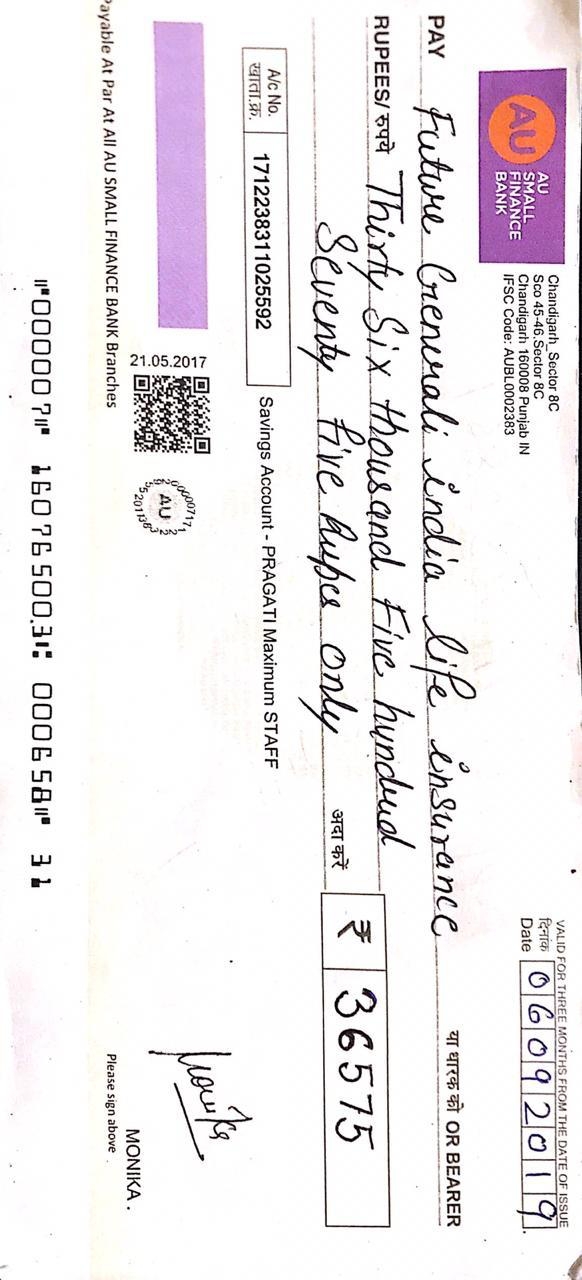 AU
AU
SMALL
FINANCE
BANK
Chandigarh_Sector 8C
Sco 45-46,Sector 8C
Chandigarh 160008 Punjab IN
IFSC Code: AUBL0002383
VALID FOR THREE MONTHS FROM THE DATE OF ISSUE
दिनांक
Date 06092019
PAY Future Generali india life insurance या धारक को OR BEARER
RUPEES/ रुपये Thirty Six thousand Five hundred
Seventy five Rupes only अदा करें ₹ 36575
A/c No.
खाता.क्र. 1712238311025592
Savings Account - PRAGATI Maximum STAFF
21.05.2017
AU
Monika
MONIKA .
Please sign above
Payable At Par At All AU SMALL FINANCE BANK Branches
⑈000007⑈ 160765003⑆ 000658⑈ 31